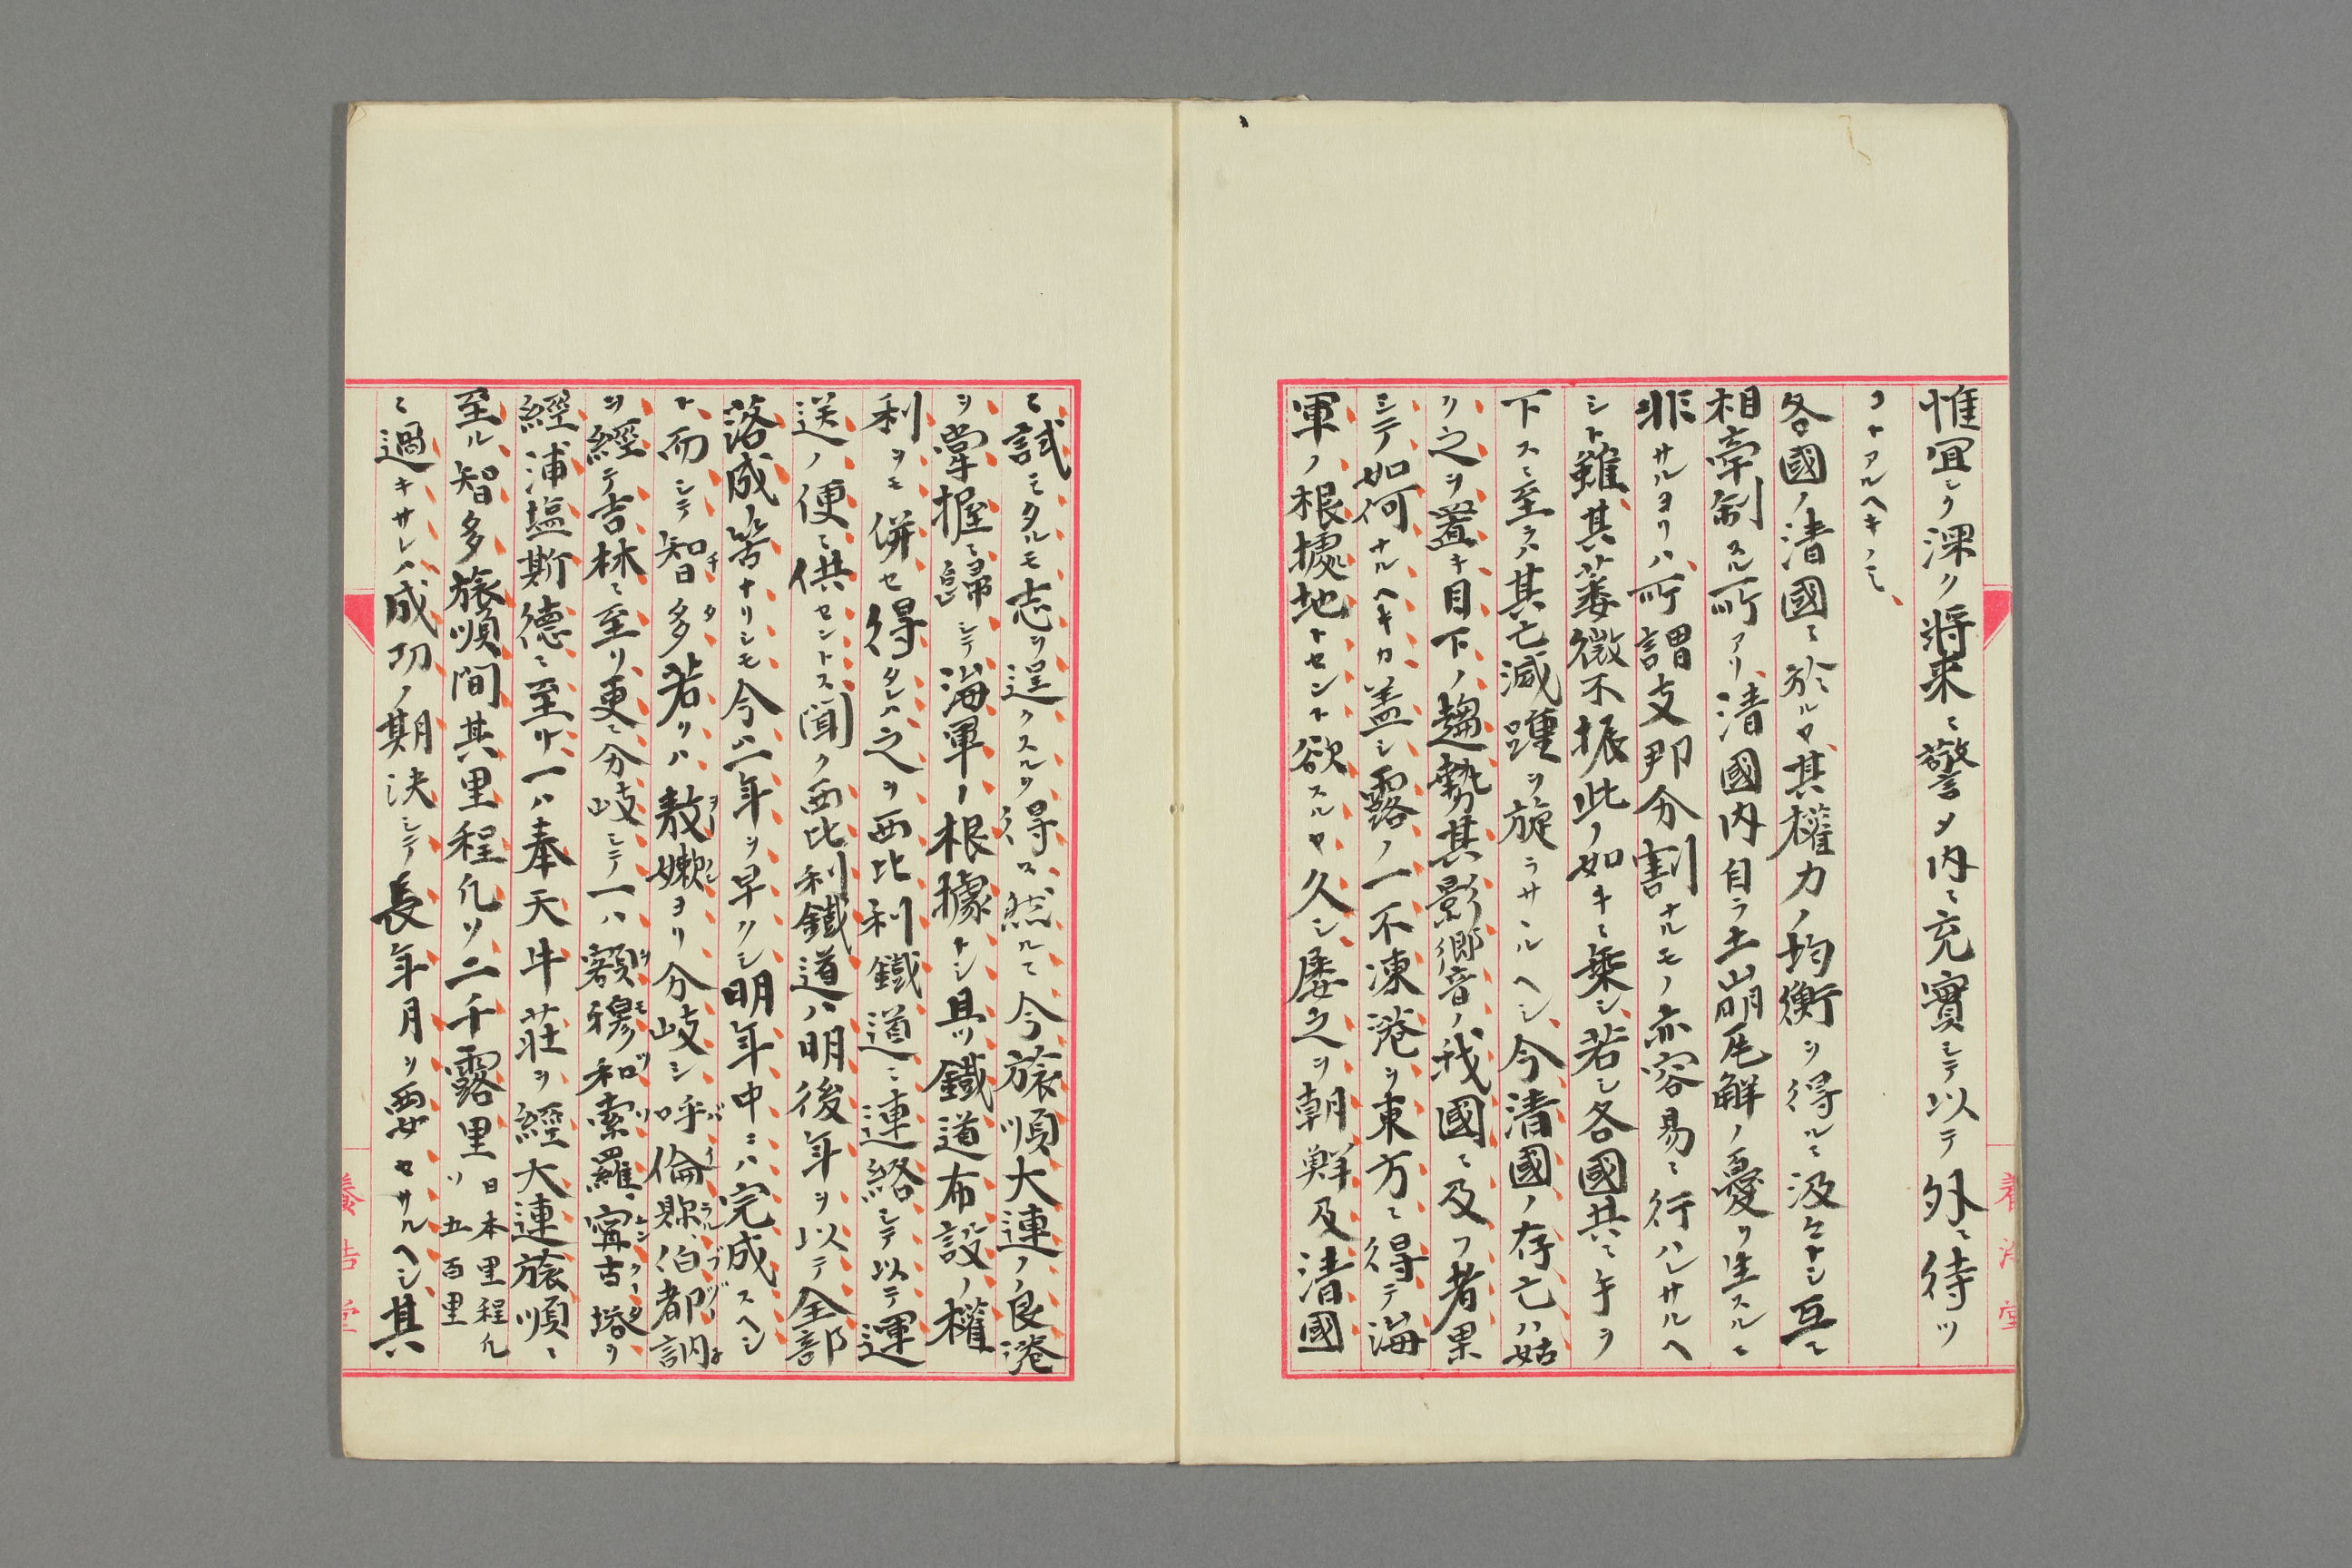 惟冝シク深ク將来ニ警メ内ニ充實シテ以テ外ニ待ツ
コトアルヘキノミ、
各國ノ清國ニ於ルヤ、其權力ノ均衡ヲ得ルニ汲々トシ互ニ
相牽制スル所アリ、清國内自ラ土崩瓦解ノ憂ヲ生スルニ
非サルヨリハ、所謂支那分割ナルモノ亦容易ニ行ハレサルヘ
シト雖、其萎微不振此ノ如キニ乗シ、若シ各國共ニ手ヲ
下スニ至ラハ、其亡滅踵ヲ旋ラサヽルヘシ、今清國ノ存亡ハ姑
ク之ヲ置キ目下ノ趨勢其影響ノ我國ニ及フ者果
シテ如何ナルヘキカ、盖シ露ノ一不凍港ヲ東方ニ得テ海
軍ノ根據地トセント欲スルヤ久シ、屡之ヲ朝鮮及清國
ニ試ミタルモ志ヲ逞クスルヲ得ス、然ルニ今旅順大連ノ良港
ヲ掌握ニ歸シテ海軍ノ根據トシ、且ツ鐵道布設ノ權
利ヲモ併セ得タレハ之ヲ西比利鐵道ニ連絡シテ以テ運
送ノ便ニ供セントス、聞ク西比利鐵道ハ明後年ヲ以テ全部
落成ノ筈ナリシモ今ハ一年ヲ早クシ明年中ニハ完成スヘシ
ト、而シテ智多若クハ敖嫩ヨリ分岐シ呼倫、伯都訥
ヲ經テ吉林ニ至リ、更ニ分岐シテ一ハ額穆和索羅、寗古塔ヲ
經浦塩斯德ニ至リ、一ハ奉天牛荘ヲ經大連旅順ニ
至ル、智多旅順間其里程凡ソ二千露里 日本里程凡ソ五百里
ニ過キサレハ成功ノ期決シテ長年月ヲ要セサルヘシ、其
養浩堂